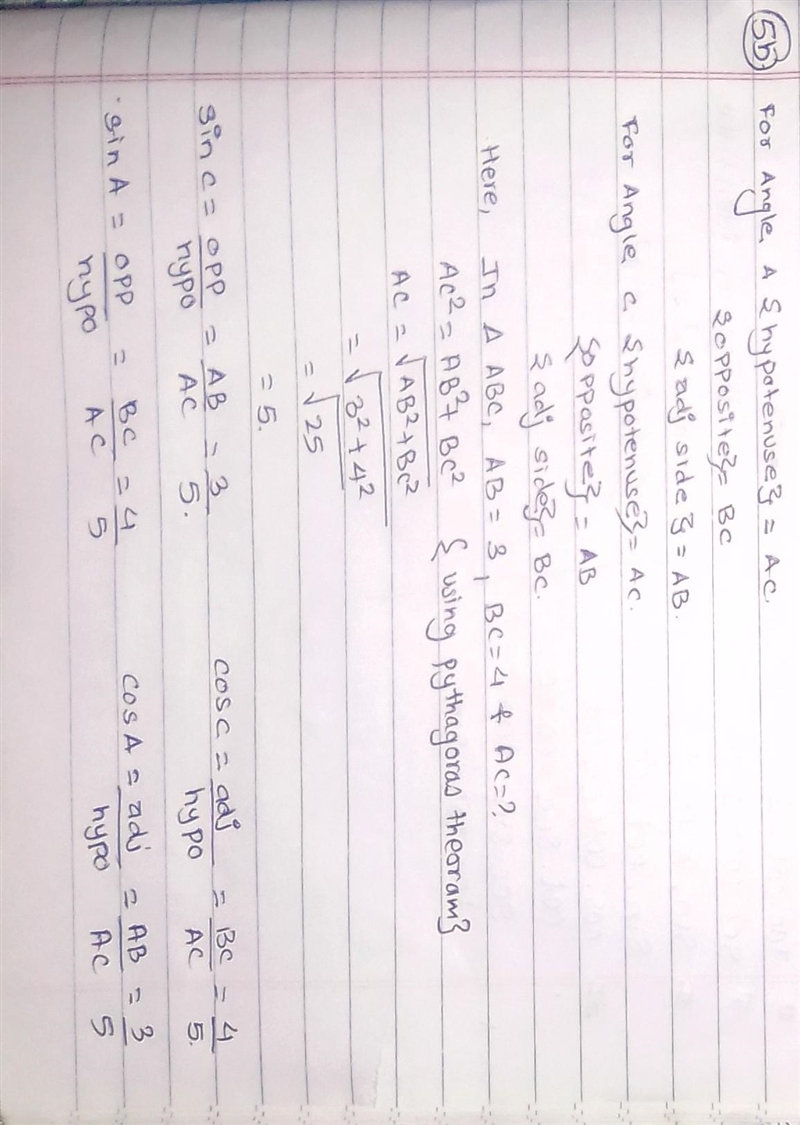 5b For Angle A {hypotenuse} = AC.
{opposite} = BC
{adj side} = AB.
For Angle C {hypotenuse} = AC.
{opposite} = AB
{adj side} = BC.
Here, In Δ ABC, AB = 3, BC = 4 & AC = ?.
AC² = AB² + BC² {using pythagoras theoram}
AC = √AB² + BC²
= √3² + 4²
= √25
= 5.
sin C = opp/hypo = AB/AC = 3/5. cos C = adj/hypo = BC/AC = 4/5.
sin A = opp/hypo = BC/AC = 4/5 cos A = adj/hypo = AB/AC = 3/5